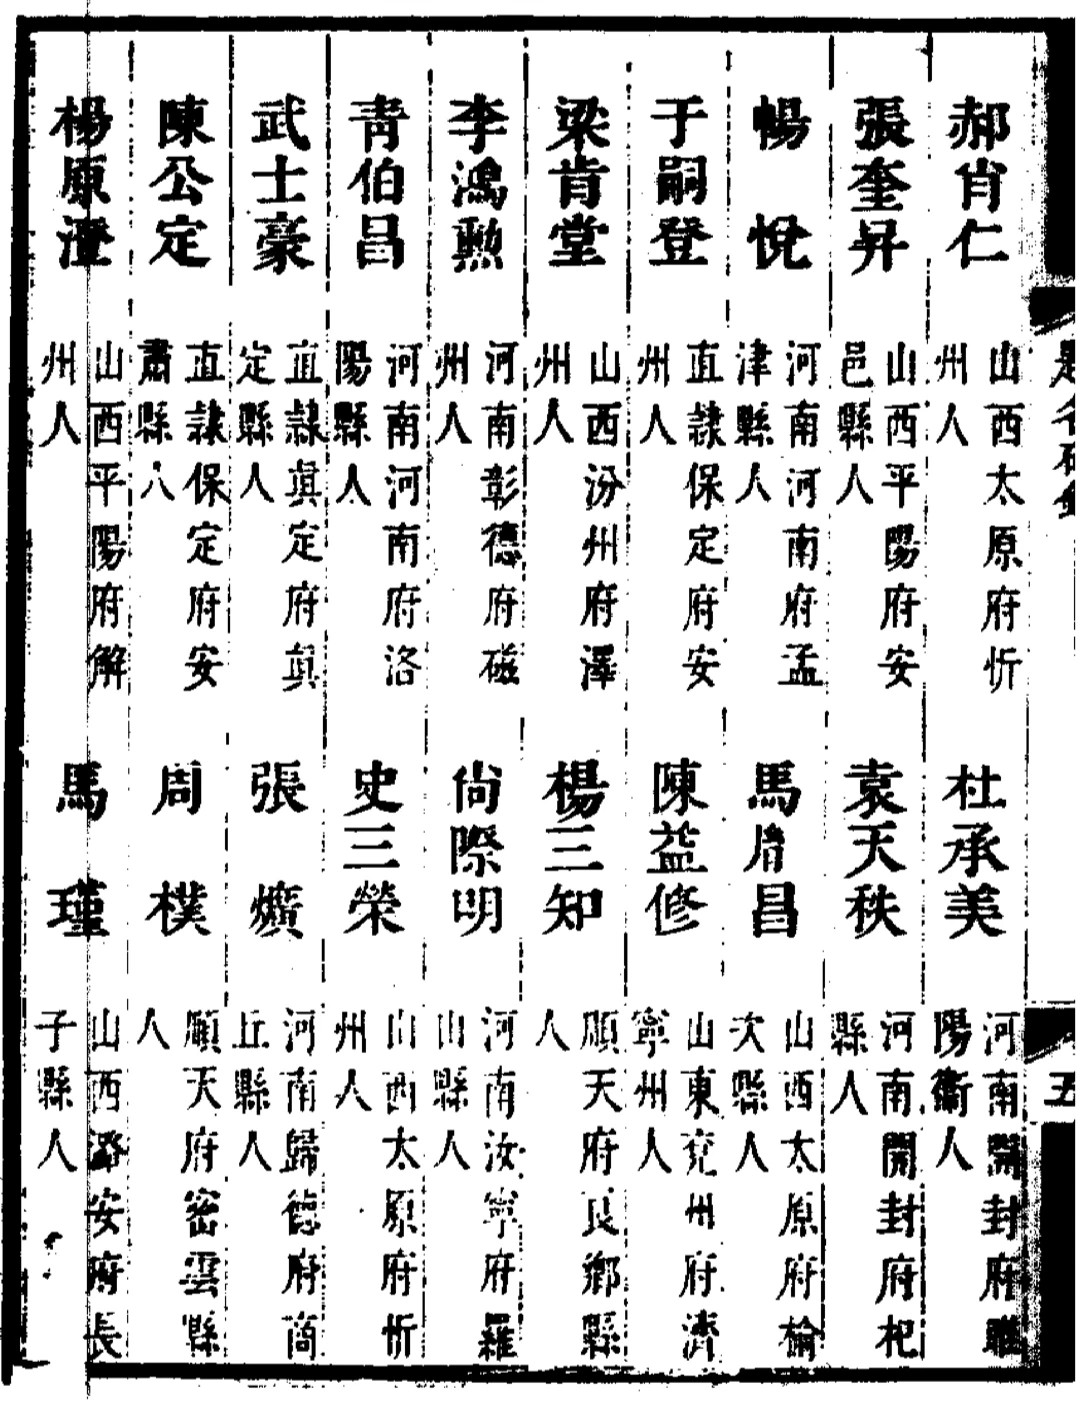 題名碑錄
五
郝肖仁 山西太原府忻州人
張奎昇 山西平陽府安邑縣人
暢悅 河南河南府孟津縣人
于嗣登 直隸保定府安州人
梁肯堂 山西汾州府澤州人
李鴻勲 河南彰德府磁州人
青伯昌 河南河南府洛陽縣人
武士豪 直隸眞定府眞定縣人
陳公定 直隸保定府安肅縣人
楊原澄 山西平陽府解州人
杜承美 河南開封府睢陽衞人
袁天秩 河南開封府杞縣人
馬胤昌 山西太原府榆次縣人
陳益修 山東兗州府濟寧州人
楊三知 順天府良鄉縣人
尙際明 河南汝寧府羅山縣人
史三榮 山西太原府忻州人
張爌 河南歸德府商丘縣人
周樸 順天府密雲縣人
馬瑾 山西潞安府長子縣人